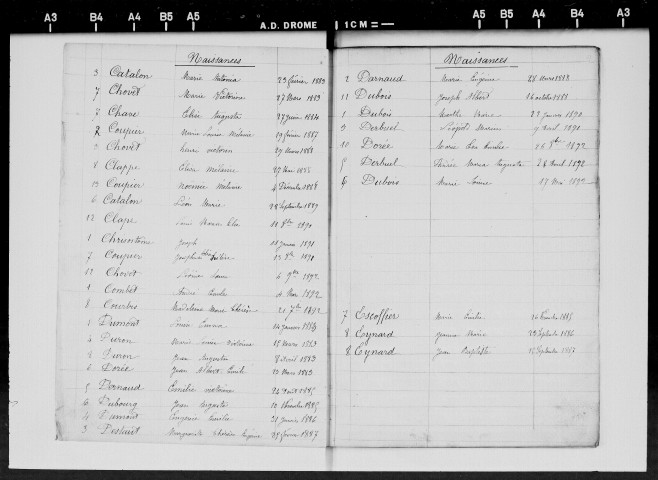 A3 B4 A4 B5 A5 A.D. DROME 1 CM A5 B5 A4 B4 A3
Naissances
3 Catalon Marie 23 février 1883
7 Chovet Marie Victorine 27 Mars 1883
7 Chave Elisée Auguste 27 juin 1884
Coupier Marie Louise Mélanie 19 février 1887
3 Chovet henri 29 Mars 1888
8 Clappe Mélanie 29 Mai 1888
Coupier Noémie Mélanie 4 Décembre 1888
6 Catalon Léon Marie 28 septembre 1889
12 Clape 11 8bre 1890
1 Joseph 11 janvier 1891
7 Coupier Joséphine 15 8bre 1891
Chovet 6 9bre 1892
1 Combet André Mai 1892
8 Courbis Madeleine Marie 21 7bre 1892
1 Dumont Louis 14 janvier 1883
4 Duron Marie Louise Victorine 15 Mars 1883
8 Duron Jean Augustin 8 Avril 1883
6 Dorée Jean Albert Emile 10 Mars 1883
5 Dernaud Emilie victorine 24 août 1885
6 Dubourg Jean Auguste 10 Décembre 1885
4 Dumont Eugénie 21 janvier 1886
3 Marguerite Eugénie février 1887
Naissances
2 Darnaud Marie Eugénie 28 Mars 1888
11 Dubois Joseph Albert 16 octobre 1889
1 Dubois Marthe Marie 22 janvier 1890
9 Léopold 9 Avril 1890
10 Dorée Rose Emilie 26 8bre 1892
5 Maria Augusta 28 Avril 1892
6 Dubois Marie Louise 19 Mai 1892
7 Escoffier Marie Emilie 26 Février 1885
8 Eynard Jeanne Marie 23 septembre 1886
8 Eynard Jean Baptiste 12 septembre 1887